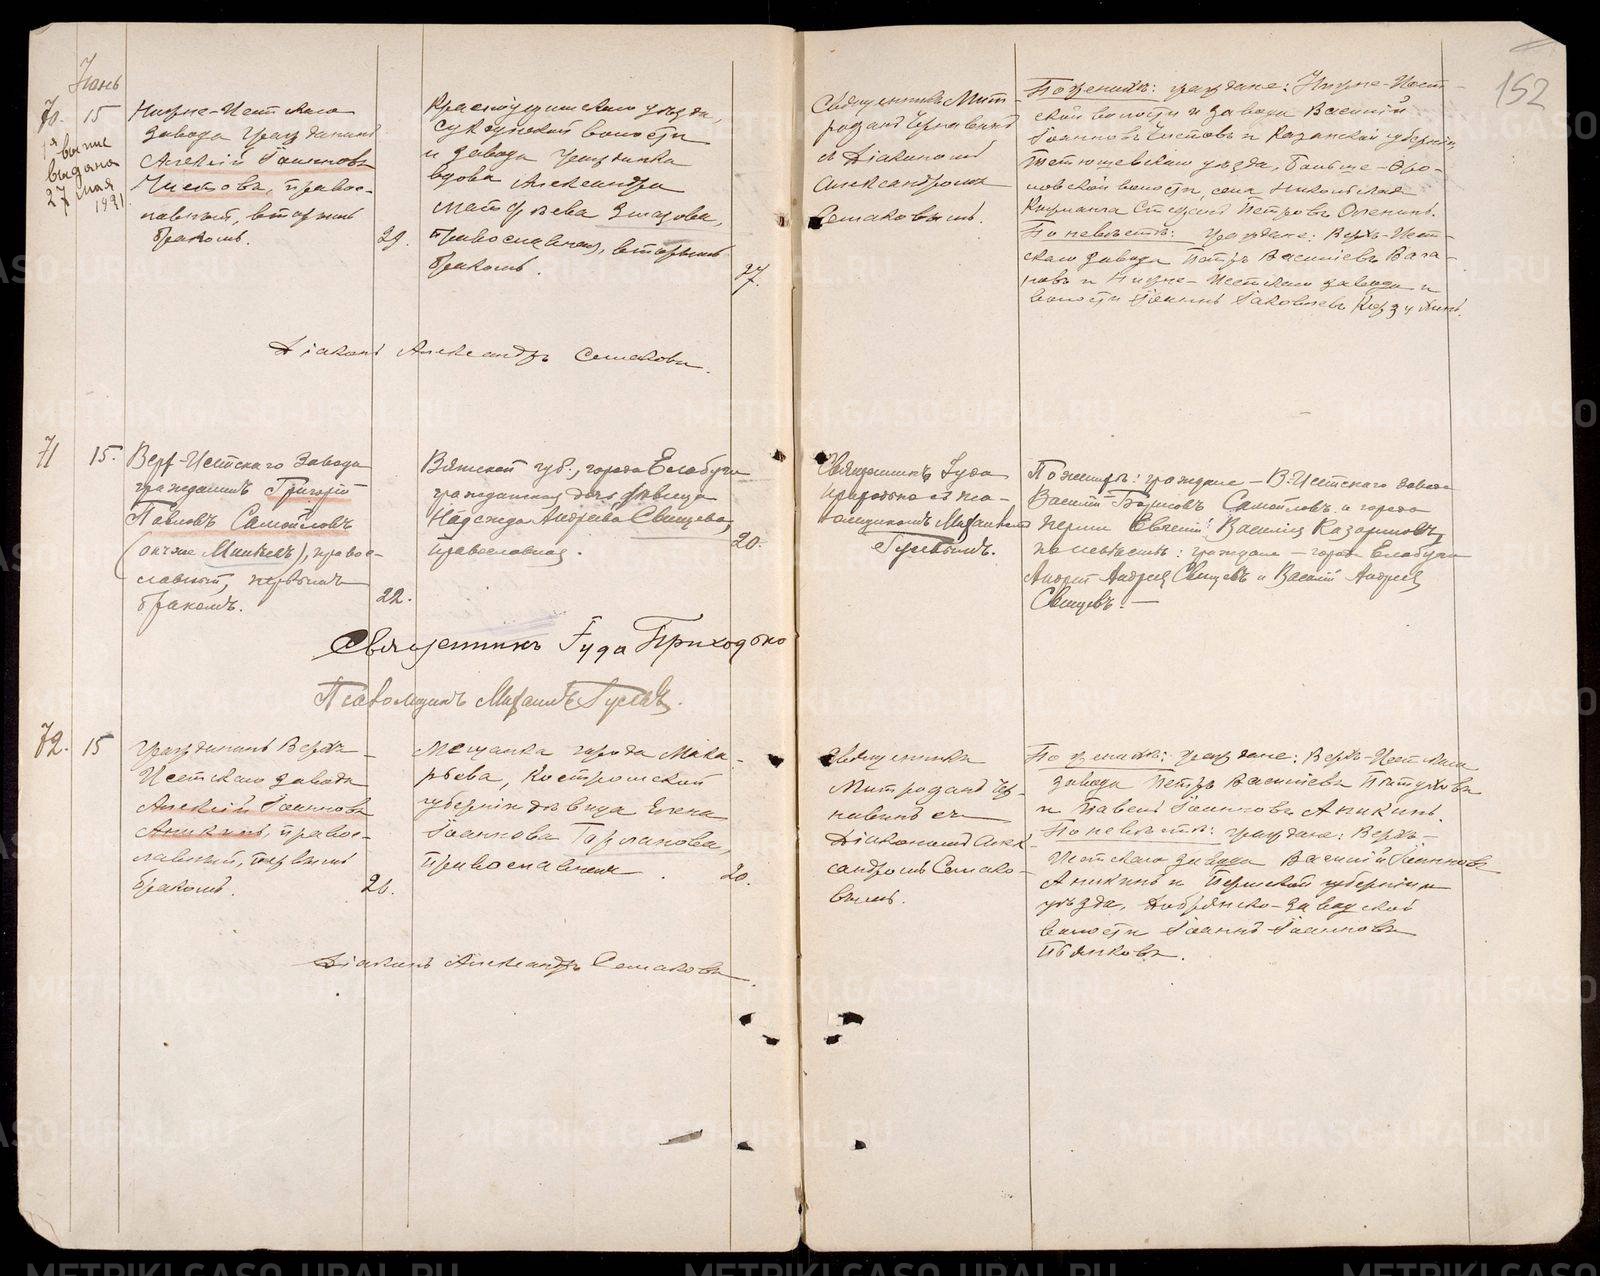 152
Июнь
70. 15
выпис
выдана
27 мая
1921
Нижне-Исетскаго
завода гражданинъ
Алексій Іоанновъ
Чистовъ, правос-
лавный, вторымъ
бракомъ.
29.
Красноуфимскаго уѣзда,
Суксунской волости
и завода гражданка
вдова Александра
Матѳѣева
православная, вторымъ
бракомъ.
27.
Священникъ Мит-
рофанъ
съ Діакономъ
Александромъ
Семаковымъ.
По женихѣ: граждане: Нижне-Исет-
ской волости и завода Василій
Іоанновъ Чистовъ и Казанской губерніи,
Тетюшевскаго уѣзда,
волости, села Никольская
Стефанъ Петровъ Оленинъ.
По невѣстѣ: граждане: Верхъ-Исет-
скаго завода Петръ Василіевъ
и Нижне-Исетскаго завода и
волости Іоаннъ Іаковлевъ
Діаконъ Александръ Семаковъ.
71 15.
Верх-Исетскаго завода
гражданинъ Григорій
Павловъ Самойловъ
(онъ же Минѣевъ), правос-
лавный, первымъ
бракомъ.
22.
Вятской губ., города Елабуги
гражданка дѣвица
Надежда Андреева Свищева,
православная.
20.
Священникъ Іуда
Приходько съ пса-
ломщикомъ Михаиломъ
Гусевымъ.
По женихѣ: граждане - В-Исетскаго завода
Василій Борисовъ Самойловъ и города
Перми Евгеній Василіев Казариновъ,
по невѣстѣ: граждане - города Елабуги
Андрей Андреев Свищевъ и Василій Андреев
Свищевъ. -
Священникъ Іуда Приходько
Псаломщикъ Михаилъ Гусевъ.
72. 15
Гражданинъ Верхъ-
Исетскаго завода
Алексій Іоанновъ
Аникинъ, правос-
лавный, первымъ
бракомъ.
26.
Мещанка города Мака-
рьева, Костромской
губерніи дѣвица Елена
Іоаннова
православная.
20.
Священникъ
Митрофанъ

Діакономъ Алек-
сандромъ Семако-
вымъ.
По женихѣ: граждане: Верхъ-Исетскаго
завода Петръ Василіевъ
и Павелъ Іоанновъ Аникинъ.
По невѣстѣ: граждане: Верхъ-
Исетскаго завода Василій Іоанновъ
Аникинъ и Пермской губерніи и
уѣзда, Добрянско-заводской
волости Іоаннъ Іоанновъ
Пьянковъ.
Діаконъ Александръ Семаковъ.
METRIKI.GASO-URAL.RU